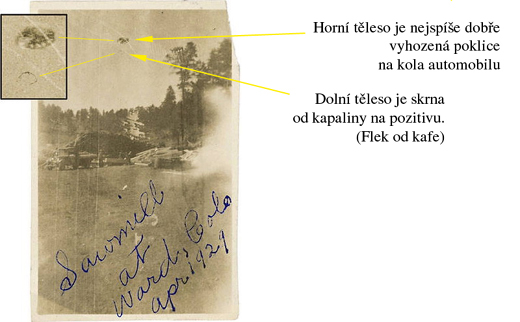 Horní těleso je nejspíše dobře
vyhozená poklice
na kola automobilu
Dolní těleso je skrna
od kapaliny na pozitivu.
(Flek od kafe)
Sawmill
at
Ward, Colo
apr 1929